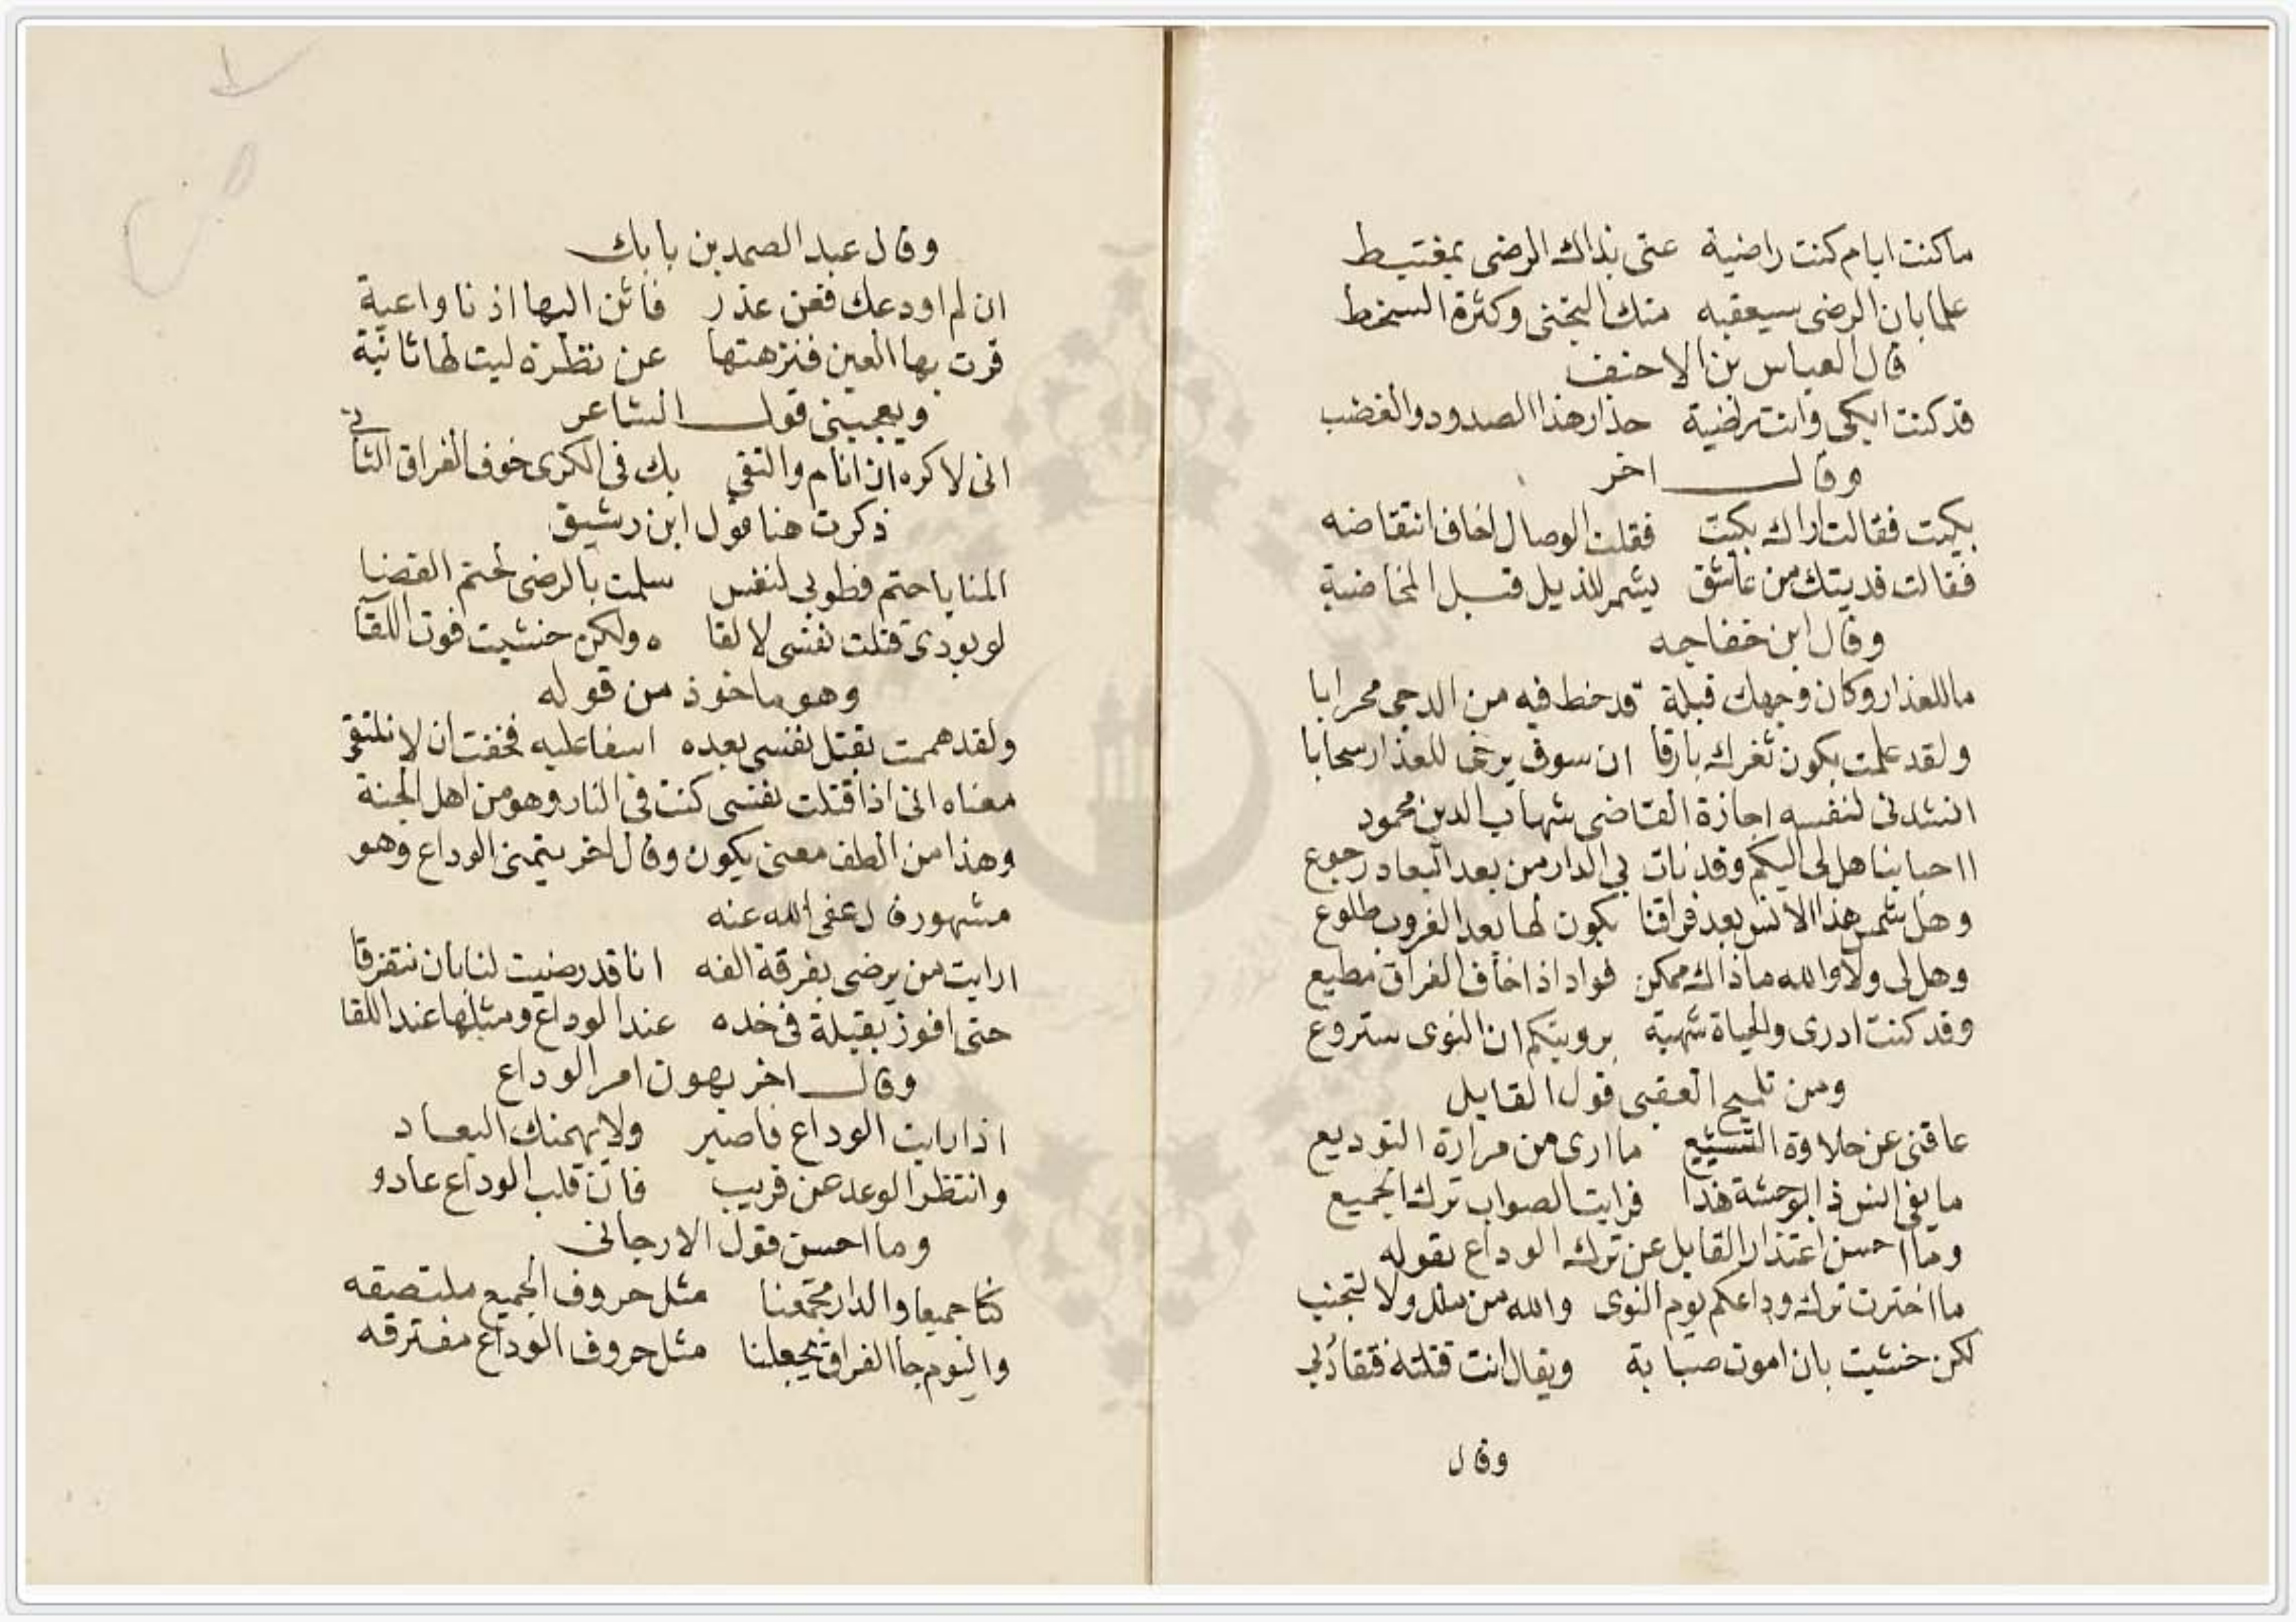 ماكنت ايام كنت راضية عنى بذاك الرضى بمغتبط
علما بان الرضى سيعقبه منك التجنى وكثرة السخط
قال العباس بن الاحنف
قد كنت ابكى وانت راضية حذار هذا الصدود والغضب
وقال اخر
بكيت فقالت اراك بكيت فقلت الوصال اخاف انتقاضه
فقالت فديتك من عاشق يشمر للذيل قبل المخاضة
وقال ابن خفاجه
ماللعذار وكان وجهك قبلة قد خط فيه من الدجى محرابا
ولقد علمت بكون ثغرك بارقا ان سوف يزجى للعذار سحابا
انشدنى لنفسه اجازة القاضى شهاب الدين محمود
ااحبابنا هل لى اليكم وقد نات بى الدار من بعد البعاد رجوع
وهل شمس هذا الانس بعد فراقنا يكون لها بعد الغروب طلوع
وهل لى ولا والله ماذاك ممكن فواد اذا خاف الفراق مطيع
وقد كنت ادرى والحياة شهية برويتكم ان النوى ستروع
ومن تلميح الفقهى قول القايل
عاقنى عن حلاوة التشييع ماارى من مرارة التوديع
مايفى انس ذا بوحشة هذا فرايت الصواب ترك الجميع
وما احسن اعتذار القايل عن ترك الوداع بقوله
مااخترت ترك وداعكم يوم النوى والله من ملل ولا لتجنب
لكن خشيت بان اموت صبابة ويقال انت قتلته فتقاد بى
وقال
وقال عبد الصمد بن بابك
ان لم اودعك فعن عذر فاثن اليها اذنا واعية
قرت بها العين فنزهتها عن نظرة ليت لها ثانية
ويعجبنى قول الشاعر
انى لاكره ان انام والتقى بك فى الكرى خوف الفراق الثانى
ذكرت هنا قول ابن رشيق
المنايا حتم فطوبى لنفس سلمت بالرضى لحتم القضا
لو بودى قتلت نفسى لالقاه ولكن خشيت فوت اللقآ
وهو ماخوذ من قوله
ولقد هممت بقتل نفسى بعده اسفا عليه فخفت ان لا نلتقى
معناه انى اذا قتلت نفسى كنت فى النار وهو من اهل الجنة
وهذا من الطف معنى يكون وقال اخر يتمنى الوداع وهو
مشهور قال عفى الله عنه
ارايت من يرضى بفرقة الفه انا قد رضيت لنا بان نتفرقا
حتى افوز بقبلة فى خده عند الوداع ومثلها عند اللقا
وقال اخر يهون امر الوداع
اذا رايت الوداع فاصبر ولا يهمنك البعاد
وانتظر الوعد عن قريب فان قلب الوداع عادو
وما احسن قول الارجانى
كنا جميعا والدار تجمعنا مثل حروف الجميع ملتصقه
واليوم جا الفراق يجعلنا مثل حروف الوداع مفترقه